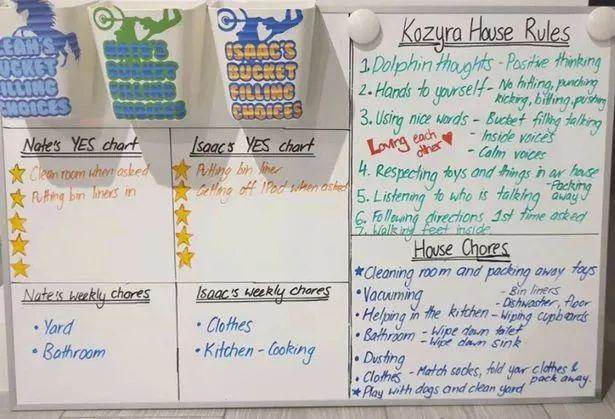 LEAH'S
BUCKET
FILLING
CHOICES
NATE'S
BUCKET
FILLING
CHOICES
ISAAC'S
BUCKET
FILLING
CHOICES
Nate's YES chart
Clean room when asked
Putting bin liners in
Isaac's YES chart
Putting bin liner
Getting off IPad when asked
Nate's weekly chores
• Yard
• Bathroom
Isaac's weekly chores
• Clothes
• Kitchen - Cooking
Kozyra House Rules
1. Dolphin thoughts - Positive thinking
2. Hands to yourself - No hitting, punching
kicking, biting, pushing
3. Using nice words - Bucket filling talking
- Inside voices
- Calm voices
Loving each
other
4. Respecting toys and things in our house
- Packing
away
5. Listening to who is talking
6. Following directions 1st time asked
7. Walking feet inside
House Chores
★ Cleaning room and packing away toys
• Vacuuming
• Helping in the kitchen - Bin liners
- Dishwasher, floor
- Wiping cupboards
• Bathroom - Wipe down toilet
- Wipe down sink
• Dusting
• Clothes - Match socks, fold your clothes &
pack away.
★ Play with dogs and clean yard